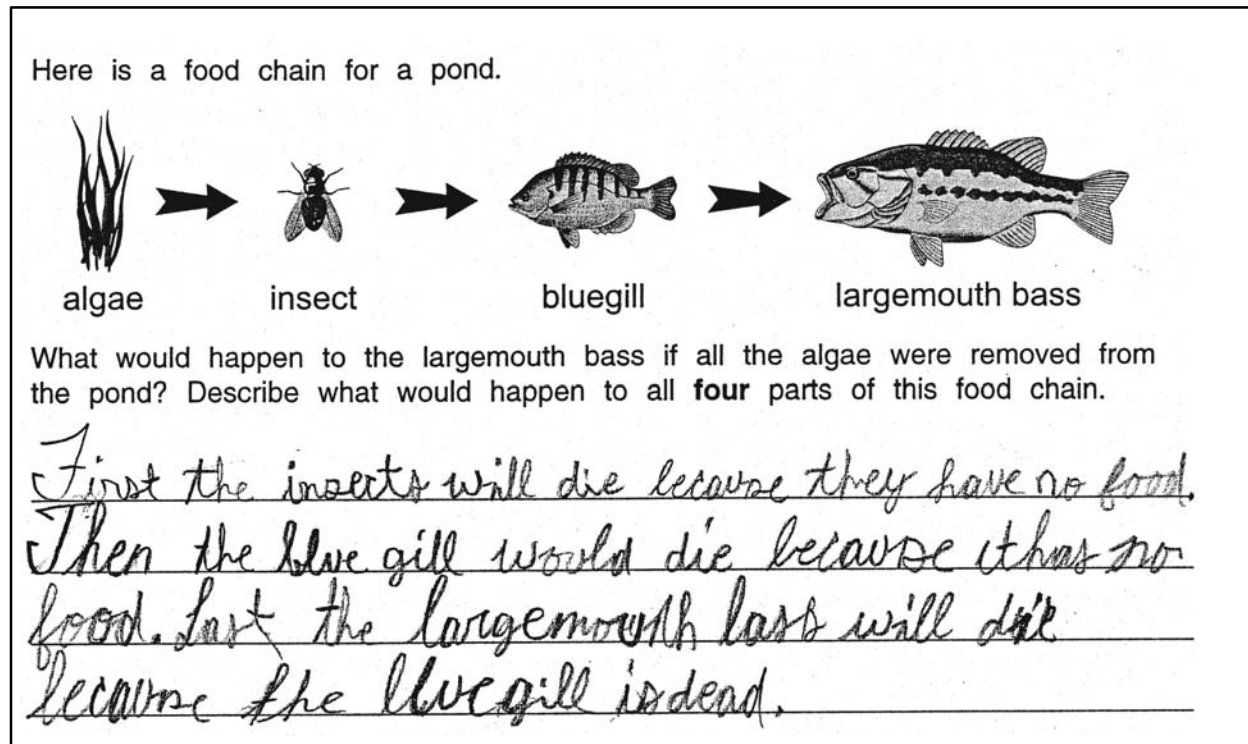 Here is a food chain for a pond.
algae insect bluegill largemouth bass
What would happen to the largemouth bass if all the algae were removed from
the pond? Describe what would happen to all four parts of this food chain.
First the insects will die because they have no food.
Then the blue gill would die because it has no
food. Last the largemouth bass will die
because the bluegill is dead.